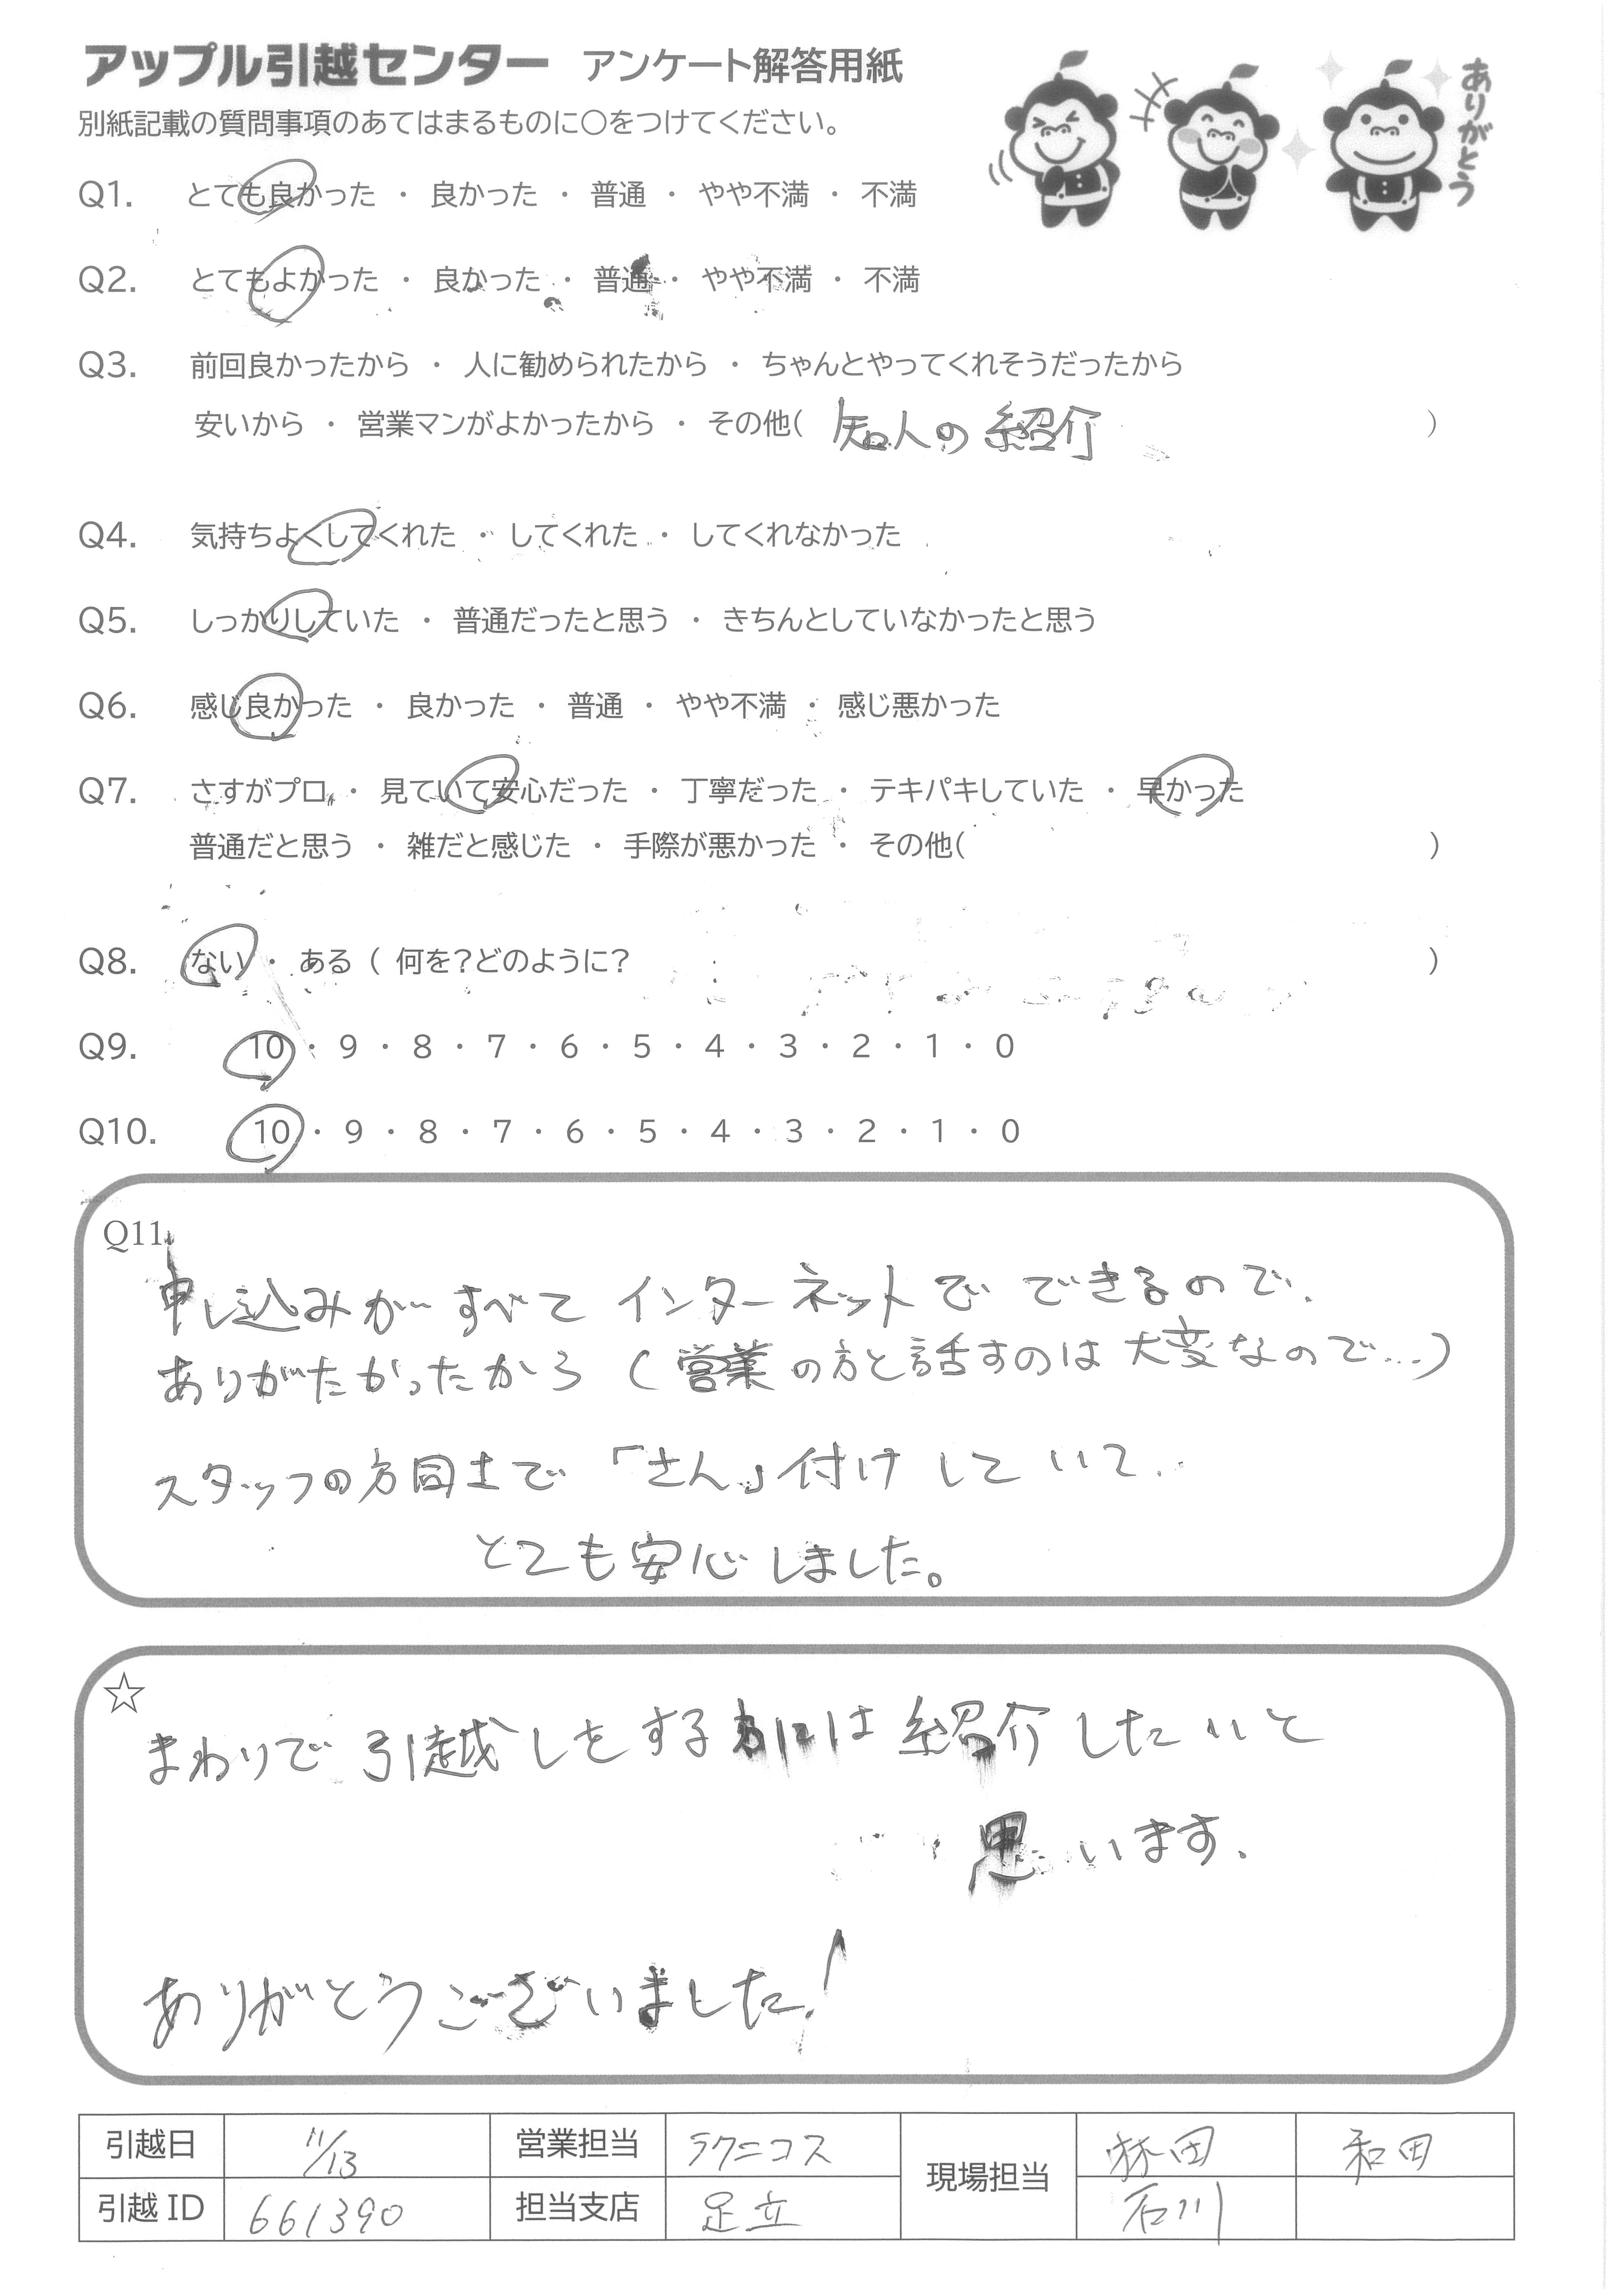 アップル引越センター アンケート解答用紙
ありがとう
別紙記載の質問事項のあてはまるものに○をつけてください。
Q1. とても良かった ・ 良かった ・ 普通 ・ やや不満 ・ 不満
Q2. とてもよかった ・ 良かった ・ 普通 ・ やや不満 ・ 不満
Q3. 前回良かったから ・ 人に勧められたから ・ ちゃんとやってくれそうだったから
安いから ・ 営業マンがよかったから ・ その他( 知人の紹介 )
Q4. 気持ちよくしてくれた ・ してくれた ・ してくれなかった
Q5. しっかりしていた ・ 普通だったと思う ・ きちんとしていなかったと思う
Q6. 感じ良かった ・ 良かった ・ 普通 ・ やや不満 ・ 感じ悪かった
Q7. さすがプロ ・ 見ていて安心だった ・ 丁寧だった ・ テキパキしていた ・ 早かった
普通だと思う ・ 雑だと感じた ・ 手際が悪かった ・ その他( )
Q8. ない ・ ある ( 何を?どのように? )
Q9. 10 ・ 9 ・ 8 ・ 7 ・ 6 ・ 5 ・ 4 ・ 3 ・ 2 ・ 1 ・ 0
Q10. 10 ・ 9 ・ 8 ・ 7 ・ 6 ・ 5 ・ 4 ・ 3 ・ 2 ・ 1 ・ 0
Q11.
申し込みがすべてインターネットでできるので、
ありがたかったから (営業の方と話すのは大変なので…)
スタッフの方同士で「さん」付けしていて、
とても安心しました。
☆
まわりで引越しをする方には紹介したいと
思います.
ありがとうございました!
引越日 11/13 営業担当 ラクニコス 現場担当 林田 和田
引越ID 661390 担当支店 足立 石川